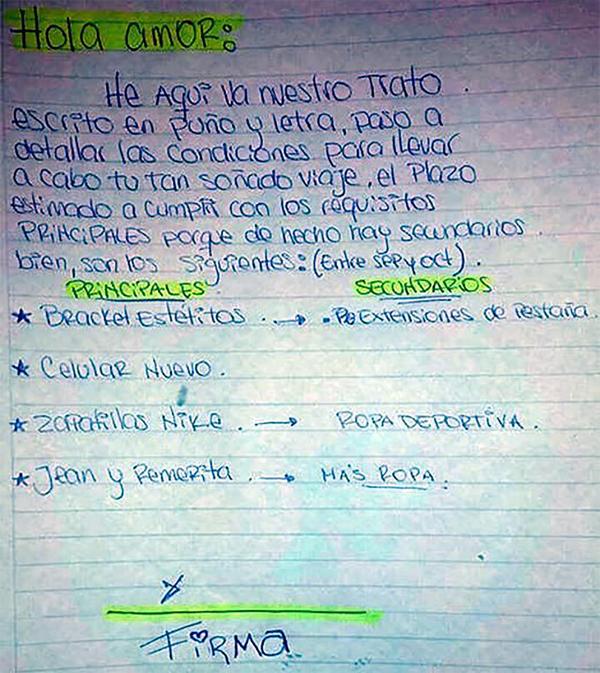 Hola amor:
He Aquí va nuestro Trato.
escrito en puño y letra, paso a
detallar las condiciones para llevar
a cabo tu tan soñado viaje, el Plazo
estimado a cumplir con los requisitos
PRINCIPALES porque de hecho hay secundarios.
bien, son los siguientes: (Entre SEP y oct).
PRINCIPALES SECUNDARIOS
* Bracket Estétitos. → Extensiones de Pestaña.
* Celular Nuevo.
* Zapatillas Nike. → ROPA DEPORTIVA.
* Jean y Remerita. → MÁS ROPA.
x
FIRMA